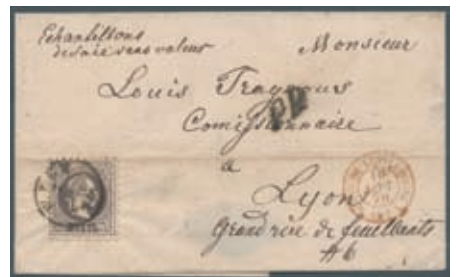 Echantillons
de soie sans valeur
Monsieur
Louis
PD
Comissionnaire
a
Lyon
Grand rue de feuillants